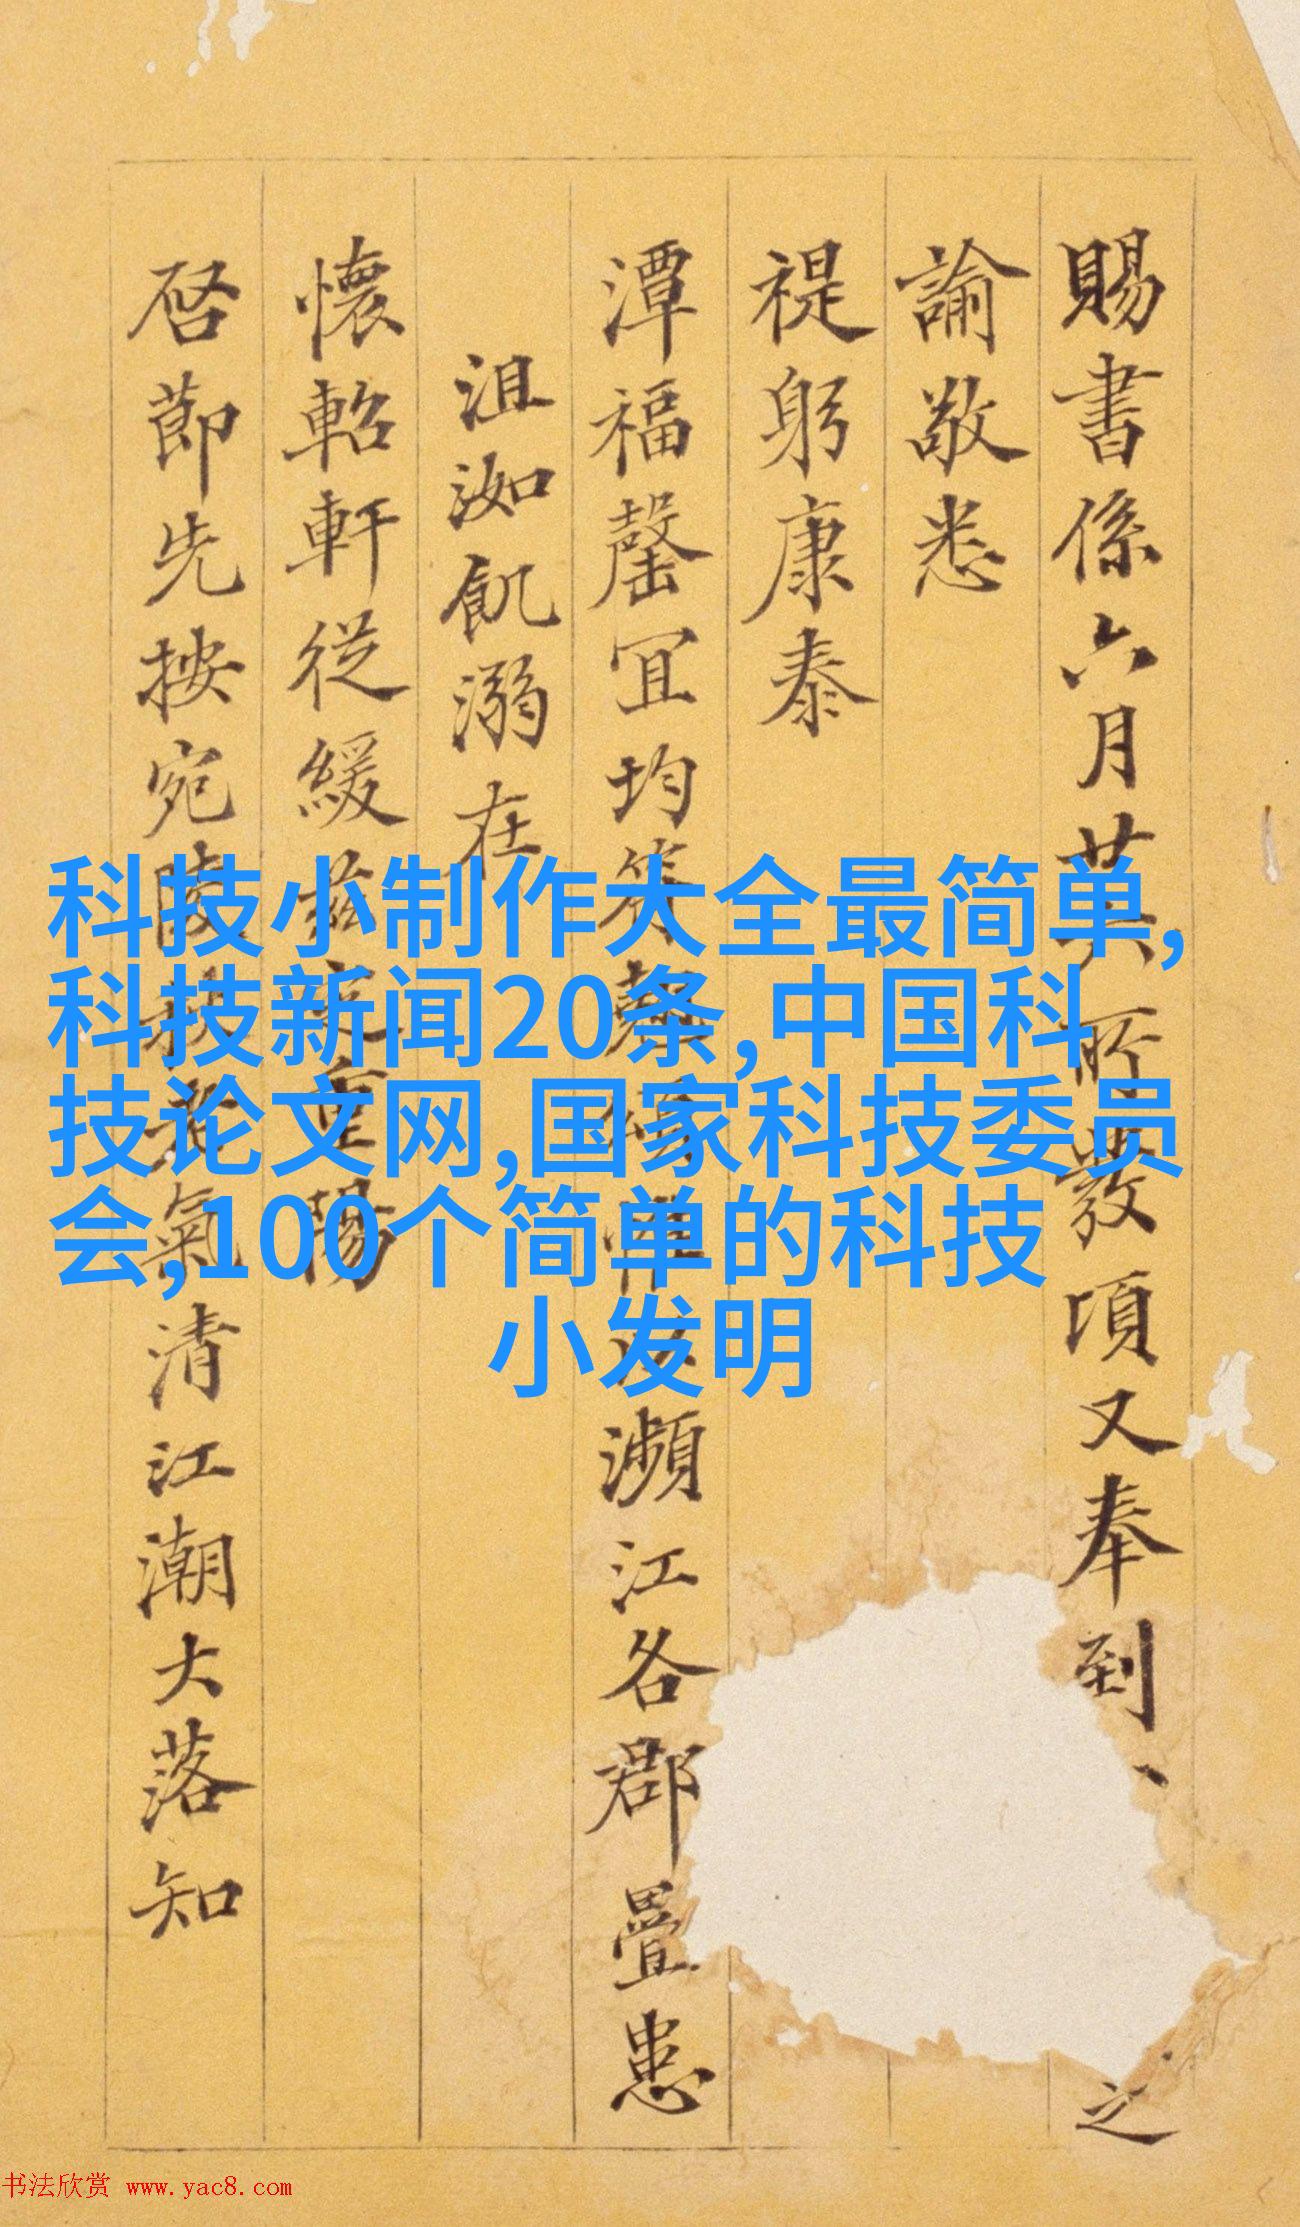 賜書係六月英所發項又奉到
之
諭敬悉
禔躬康泰
潭福罄宜均
瀕江各郡疊患
沮洳飢溺在
懷軺軒從緩茲
啓節先按宛陵秋
氣清江潮大落知
科技小制作大全最简单,
科技新闻20条,中国科
技论文网,国家科技委员
会,100个简单的科技
小发明
书法欣赏 www.yac8.com